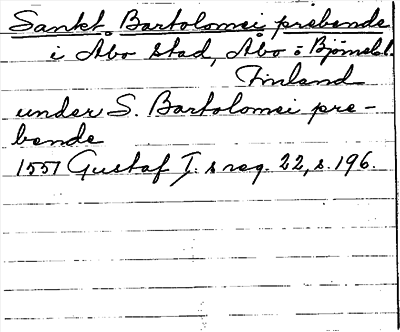 Sankt Bartolomei prebende
i Åbo stad, Åbo o Björnebl.
Finland
under S. Bartolomei pre-
bende
1551 Gustaf I. s reg. 22, s. 196.